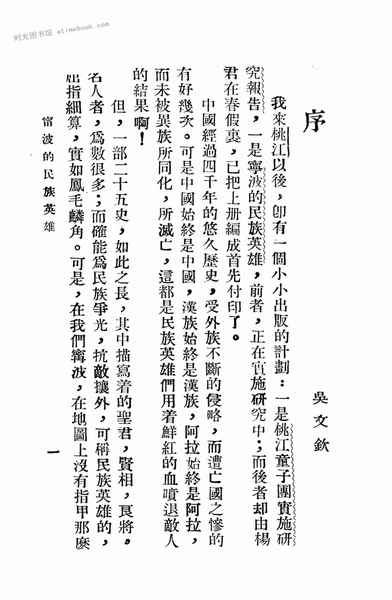 时光图书馆 elinebook.com
序
吳文欽
我來桃江以後，卽有一個小小出版的計劃：一是桃江童子團實施研
究報告，一是寧波的民族英雄，前者，正在實施研究中；而後者却由楊
君在春假裏，已把上册編成首先付印了。
中國經過四千年的悠久歷史，受外族不斷的侵略，而遭亡國之慘的
有好幾次。可是中國始終是中國，漢族始終是漢族，阿拉始終是阿拉，
而未被異族所同化，所滅亡，這都是民族英雄們用着鮮紅的血噴退敵人
的結果啊！
但，一部二十五史，如此之長，其中描寫着的聖君，賢相，良將。
名人者，爲數很多；而確能爲民族爭光，抗敵攘外，可稱民族英雄的，
屈指細算，實如鳳毛麟角。可是，在我們寧波，在地圖上沒有指甲那麽
甯波的民族英雄
一